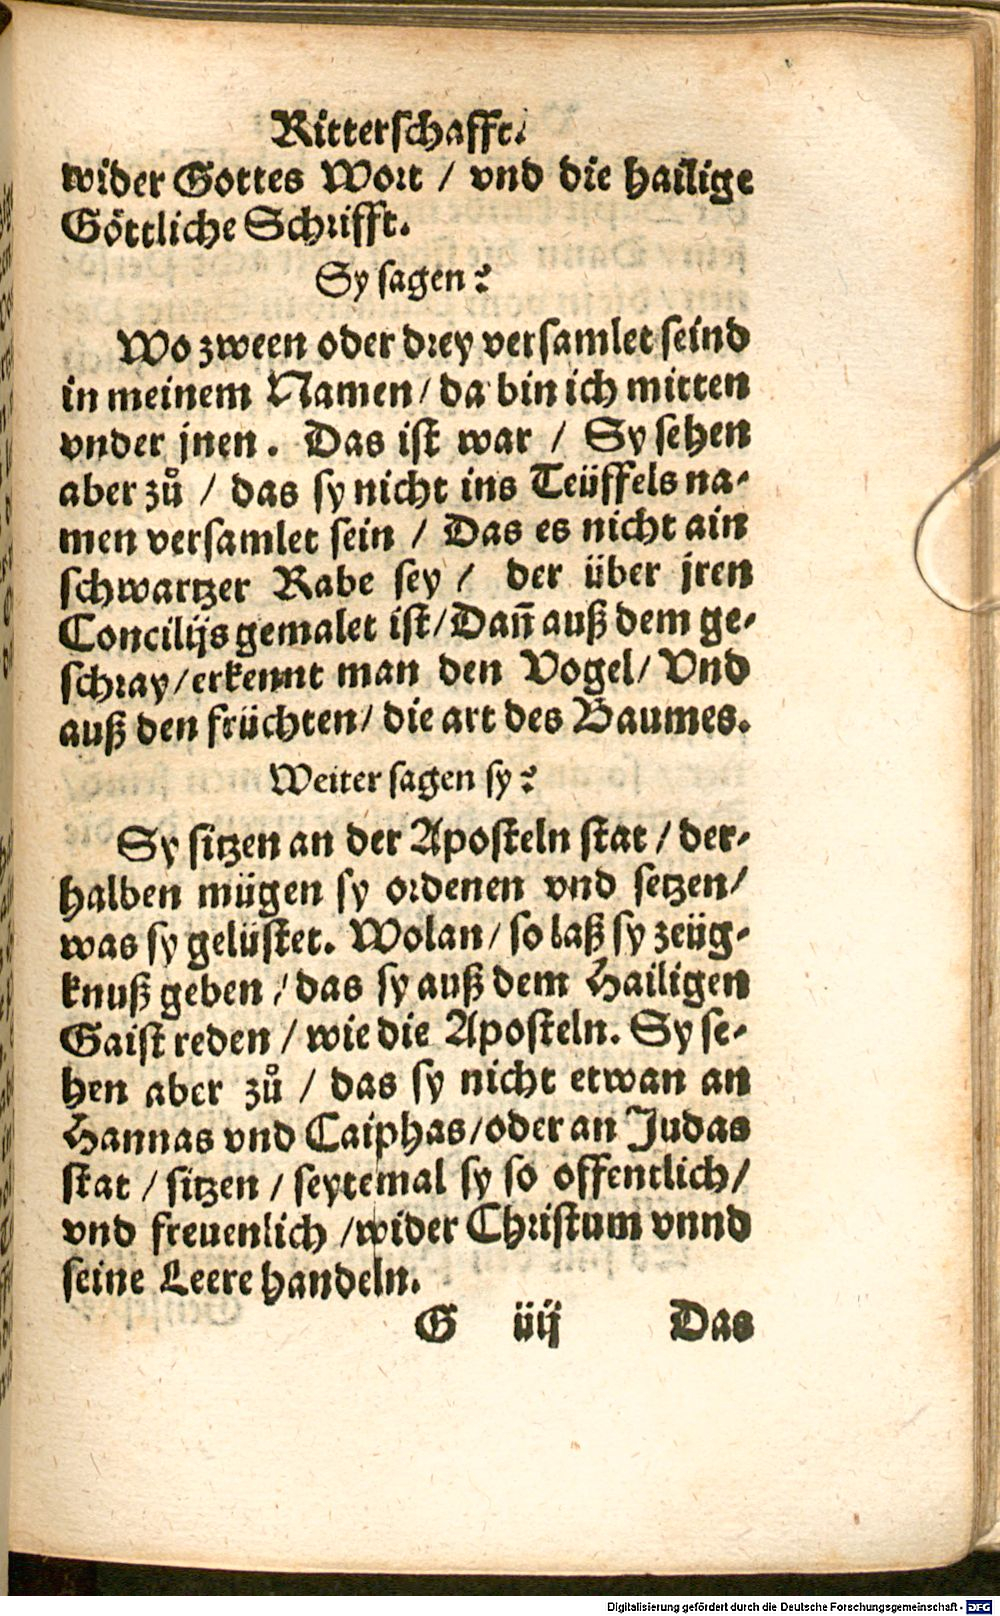 Ritterschafft.
wider Gottes Wort / vnd die hailige
Göttliche Schrifft.
Sy sagen?
Wo zween oder drey versamlet seind
in meinem Namen / da bin ich mitten
vnder jnen. Das ist war / Sy sehen
aber zů / das sy nicht ins Teüffels na-
men versamlet sein / Das es nicht ain
schwartzer Rabe sey / der über jren
Concilijs gemalet ist / Dañ auß dem ge-
schray / erkennt man den Vogel / Vnd
auß den früchten / die art des Baumes.
Weiter sagen sy?
Sy sitzen an der Aposteln stat / der-
halben mügen sy ordenen vnd setzen /
was sy gelüstet. Wolan / so laß sy zeüg-
knuß geben / das sy auß dem Hailigen
Gaist reden / wie die Aposteln. Sy se-
hen aber zů / das sy nicht etwan an
Hannas vnd Caiphas / oder an Judas
stat / sitzen / seytemal sy so offentlich /
vnd freuenlich / wider Christum vnnd
seine Leere handeln.
G iiij Das
Digitalisierung gefördert durch die Deutsche Forschungsgemeinschaft - DFG